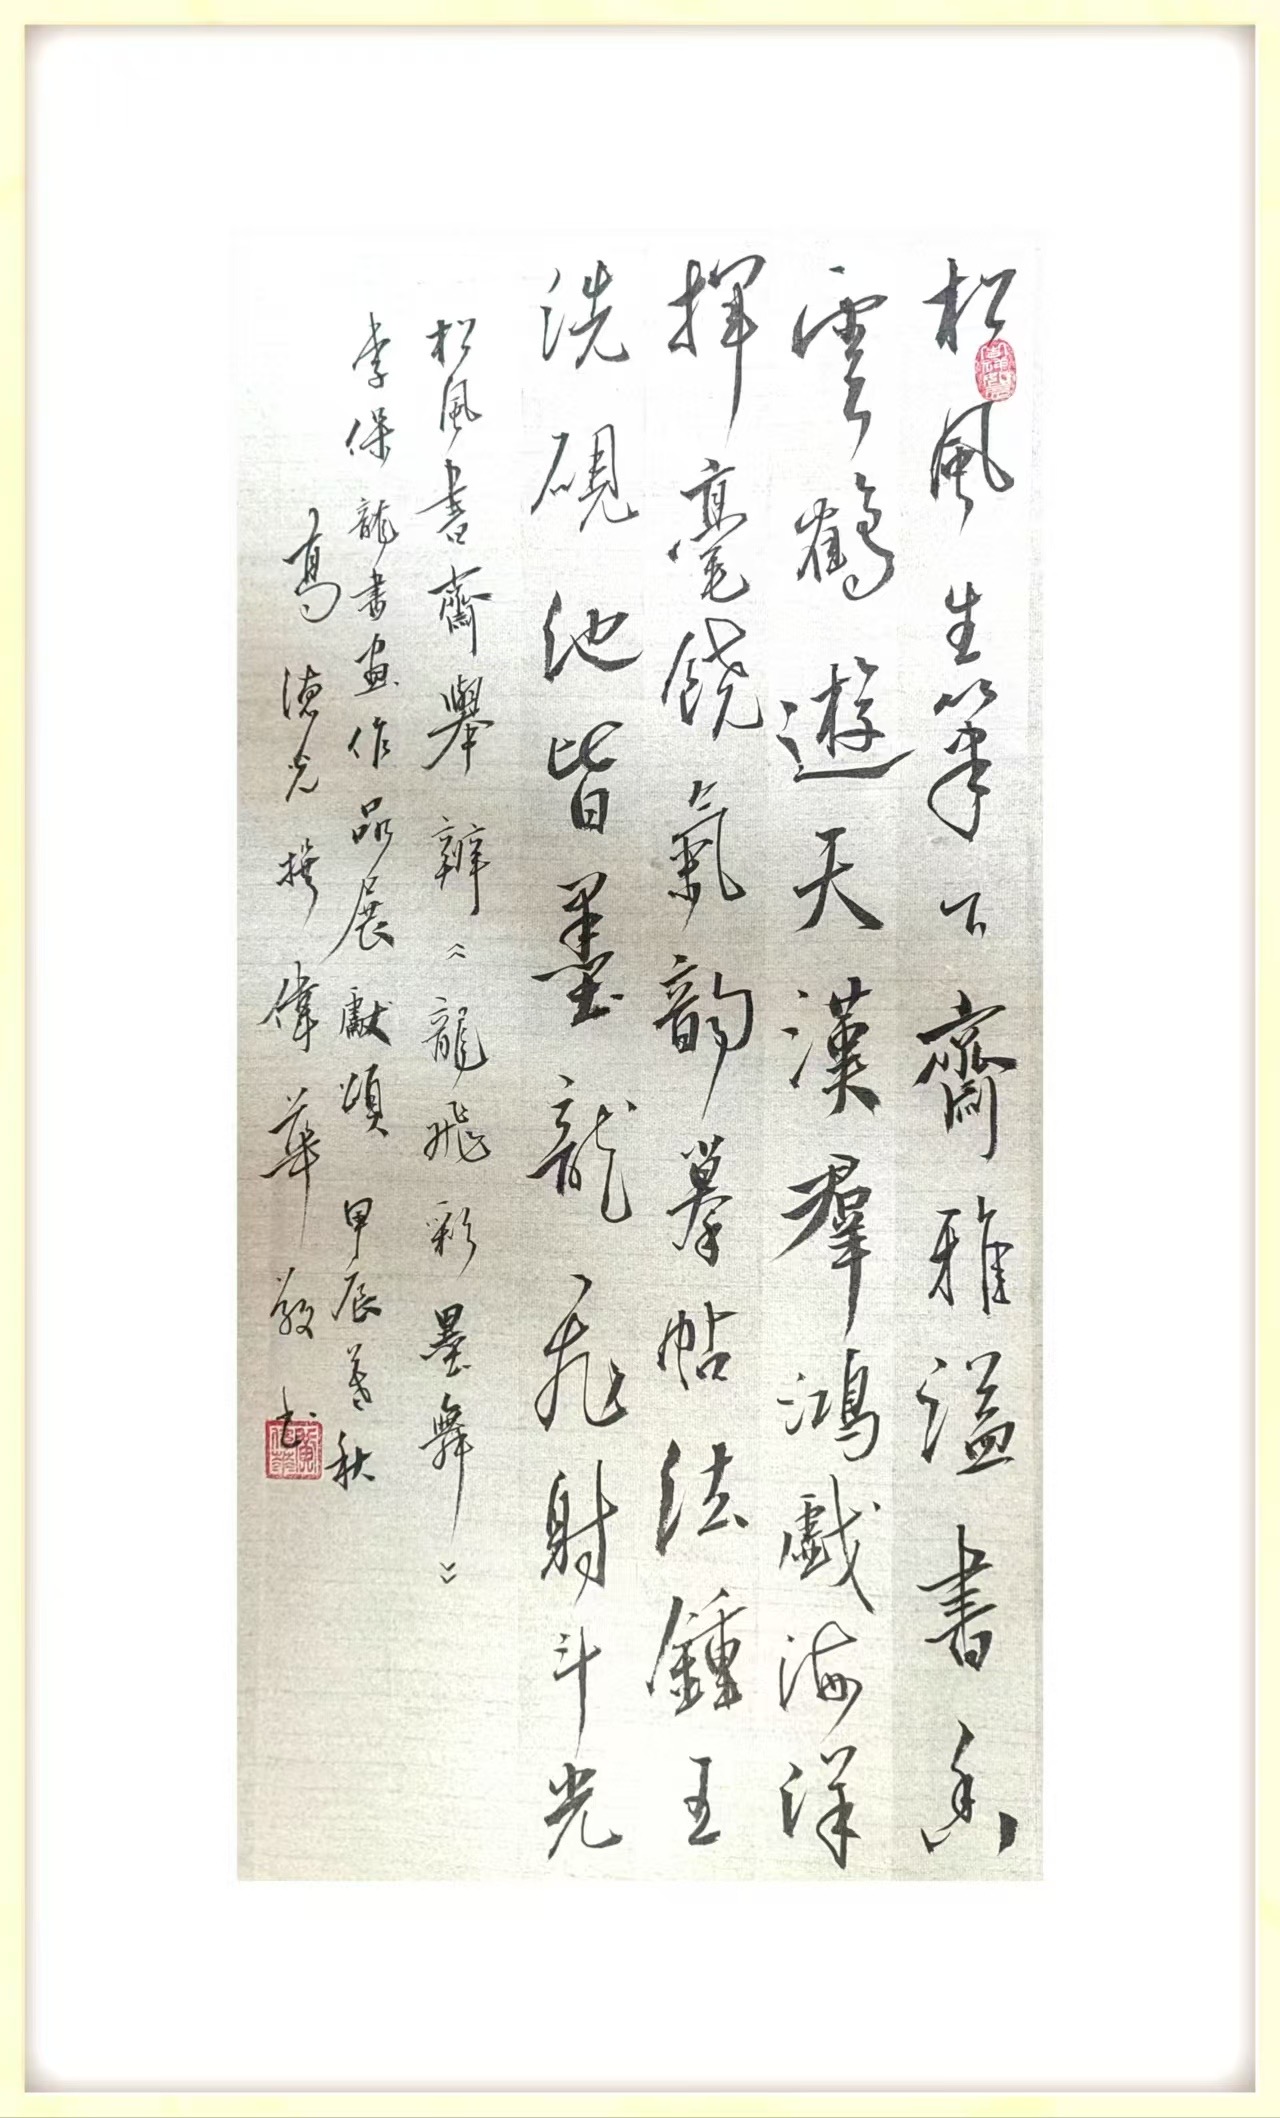 松風生筆下齋雅溢書香
雲鶴遊天漢羣鴻戲海洋
揮毫饒氣韵摹帖法鍾王
洗硯池皆墨龍飛射斗光
松風書齋舉辦《龍飛彩墨舞》
李保龍書畫作品展獻頌 甲辰暮秋
葛德光撰 偉華敬書